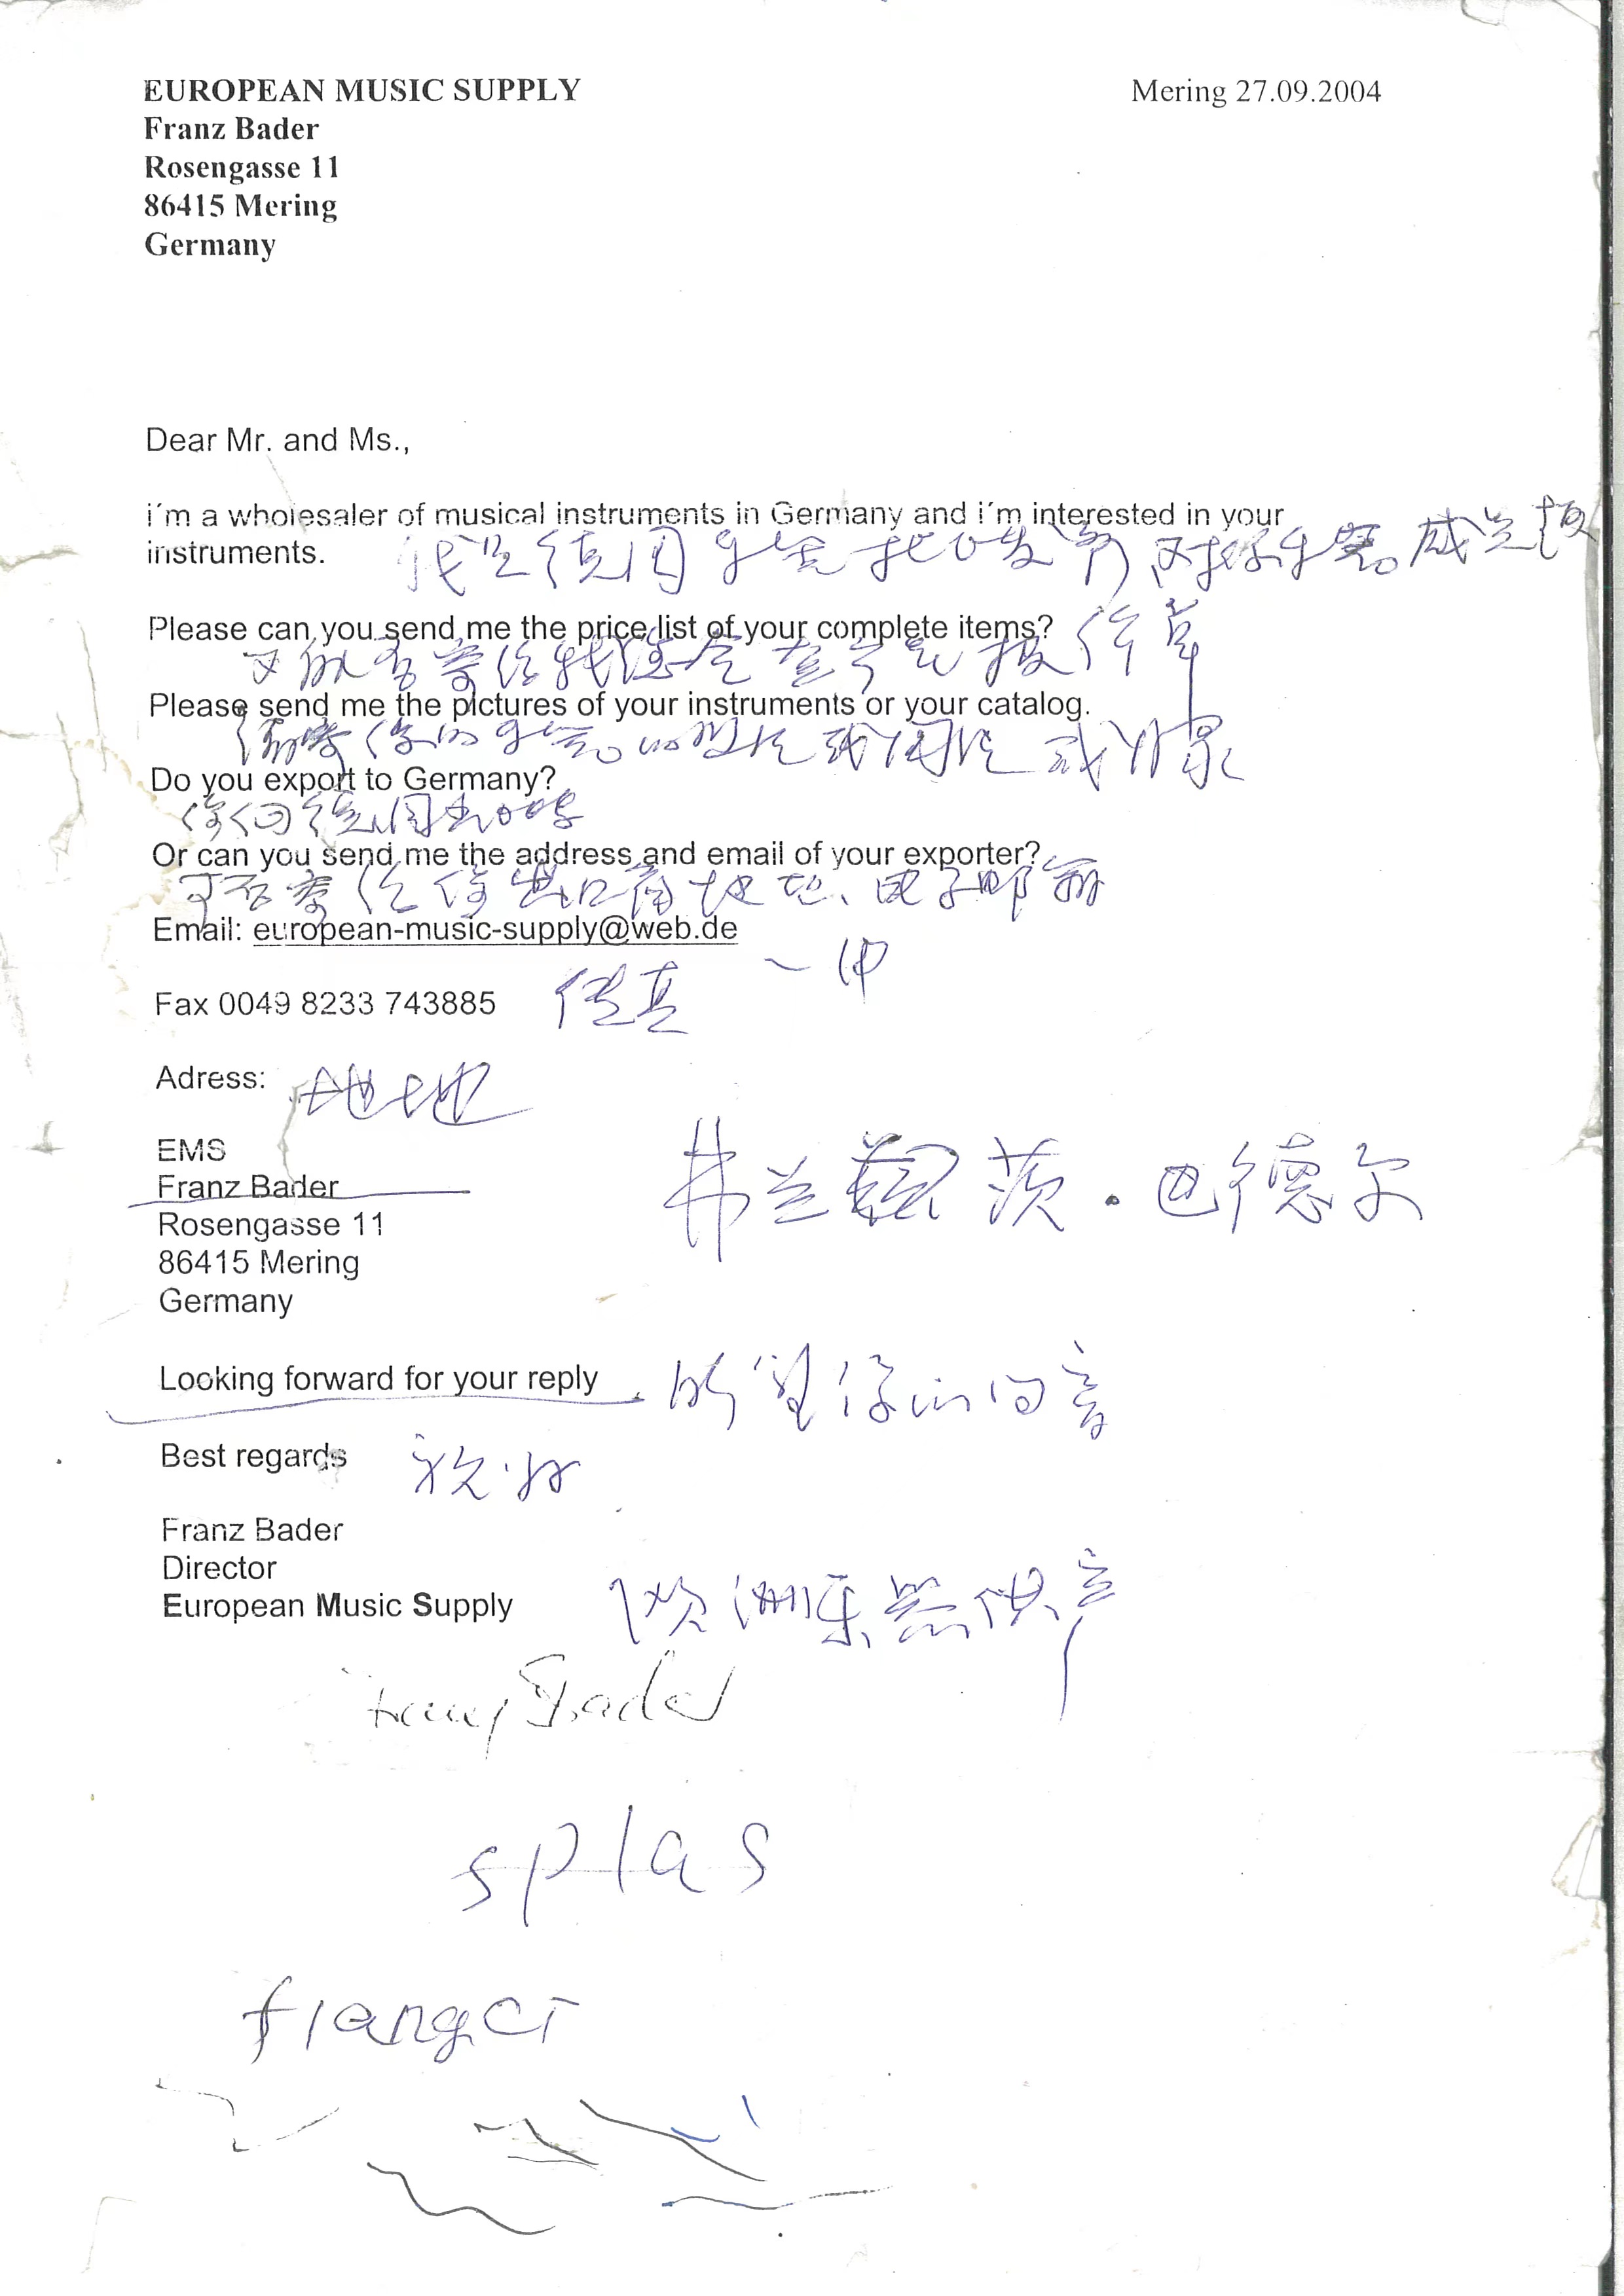 EUROPEAN MUSIC SUPPLY
Mering 27.09.2004
Franz Bader
Rosengasse 11
86415 Mering
Germany
Dear Mr. and Ms.,
i´m a wholesaler of musical instruments in Germany and i´m interested in your
instruments. 我是德国乐器批发商,对你乐器感兴趣
Please can you send me the price list of your complete items?
能否寄给我 报价单
Please send me the pictures of your instruments or your catalog.
你的乐器的照片或图片或
Do you export to Germany?
你向德国出口吗
Or can you send me the address and email of your exporter?
可否寄给你出口商地址、电子邮箱
Email: european-music-supply@web.de
Fax 0049 8233 743885 传真
Adress: 地址
EMS
Franz Bader 弗兰茨·巴德尔
Rosengasse 11
86415 Mering
Germany
Looking forward for your reply 盼望你的回音
Best regards 祝好
Franz Bader
Director
European Music Supply 欧洲乐器供应
Franz Bader
splas
flanger